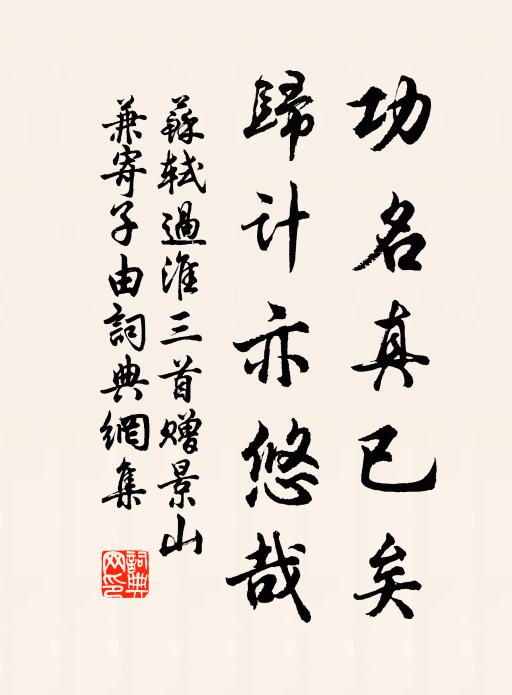 功名真已矣
歸计亦悠哉
蘇轼過淮三首赠景山
兼寄子由詞典網集
詞典网印